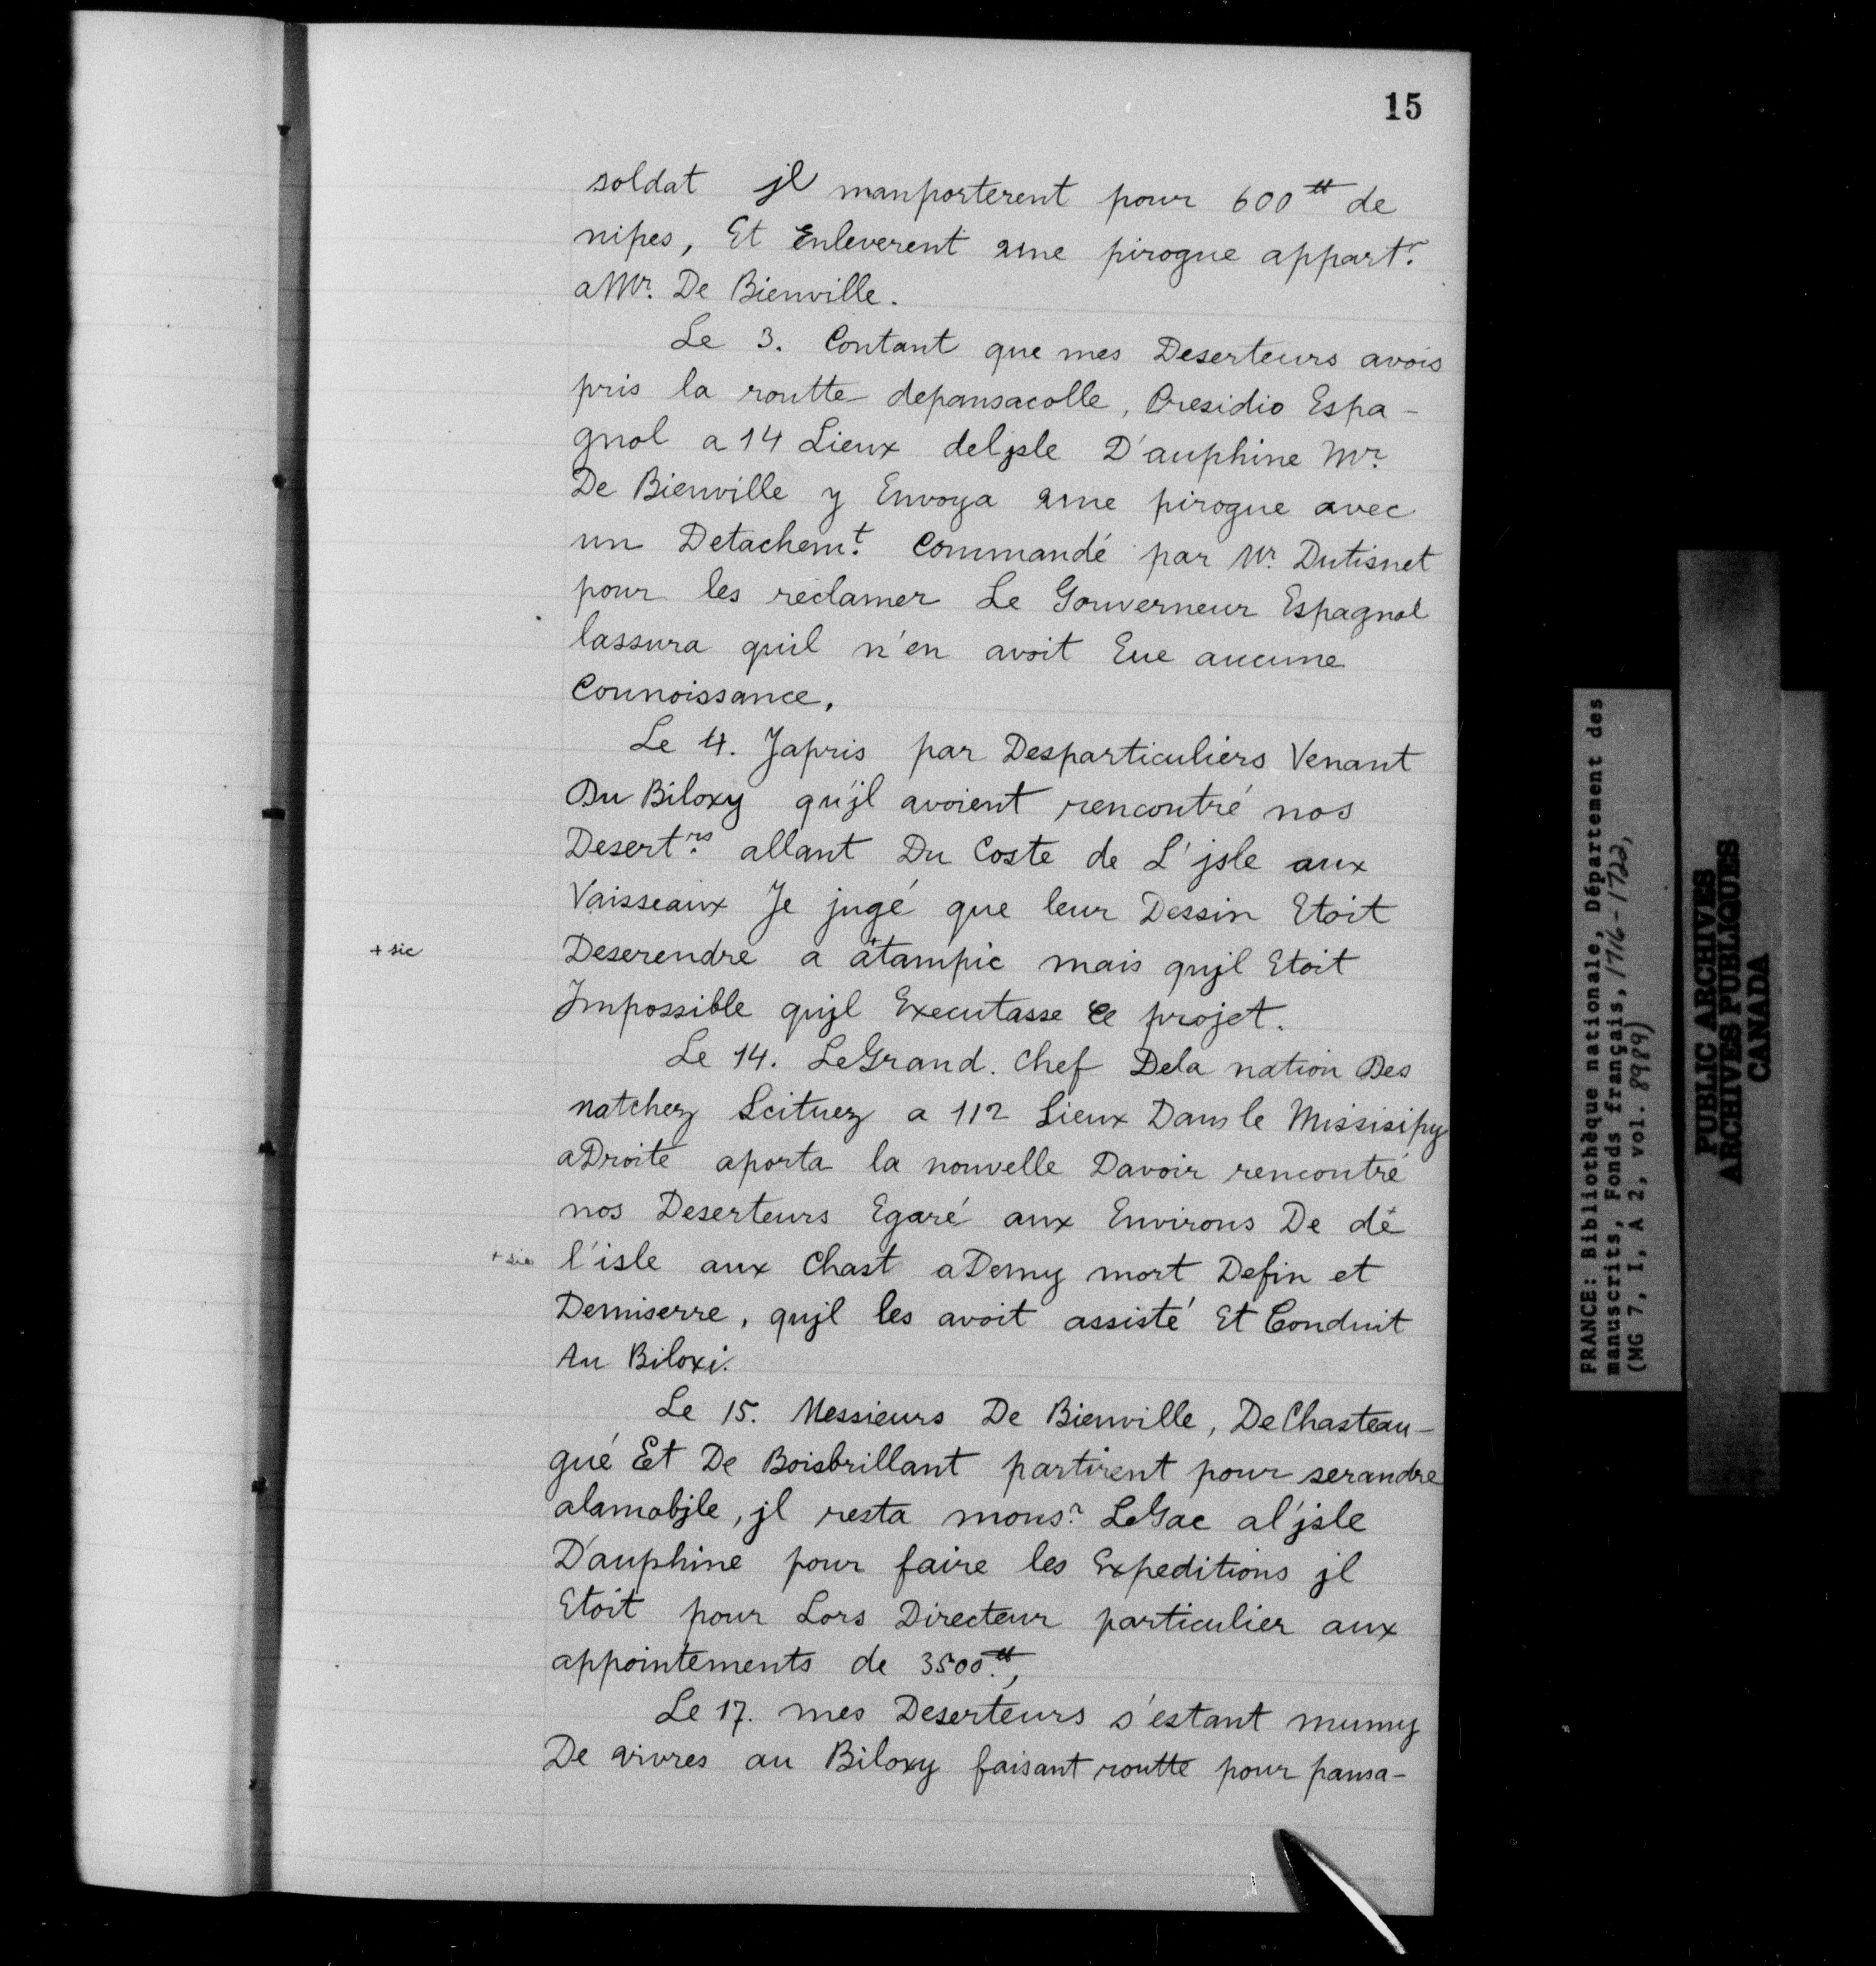 15
soldat jl manporterent pour 600tt de
nipes, Et Enleverent une pirogue appart.r
a Mr. De Bienville.
Le 3. Contant que mes Deserteurs avois
pris la routte depansacolle, Presidio Espa-
gnol a 14 Lieux deljsle D'auphine Mr.
De Bienville y Envoya une pirogue avec
un Detachem.t Commandé par Mr. Dutisnet
pour les reclamer Le Gouverneur Espagnol
lassura quil n'en avoit Eue aucune
Connoissance.
Le 4. Japris par Desparticuliers Venant
Du Biloxy qu'jl avoient rencontré nos
Desert.rs allant Du Coste de L'jsle aux
Vaisseaux Je jugé que leur Dessin Etoit
+ sic Deserendre a atampic mais qujl Etoit
Jmpossible qujl Executasse Ce projet.
Le 14. LeGrand. Chef Dela nation Des
natchez Scituez a 112 Lieux Dans le Missisipy
aDroite aporta la nouvelle Davoir rencontré
nos Deserteurs Egaré aux Environs De de
+ sic l'isle aux Chast aDemy mort Defin et
Demiserre, qujl les avoit assisté Et Conduit
Au Biloxi.
Le 15. Messieurs De Bienville, DeChasteau-
gué Et De Boisbrillant partirent pour serandre
alamobjle, jl resta mons.r LeGac al'jsle
D'auphine pour faire les Expeditions jl
Etoit pour Lors Directeur particulier aux
appointements de 3500.tt,
Le 17. mes Deserteurs s'estant muny
De vivres au Biloxy faisant routte pour pansa-
FRANCE: Bibliothèque nationale, Département des
manuscrits, Fonds français, 1716-1722,
(MG 7, I, A 2, vol. 8989)
PUBLIC ARCHIVES
ARCHIVES PUBLIQUES
CANADA